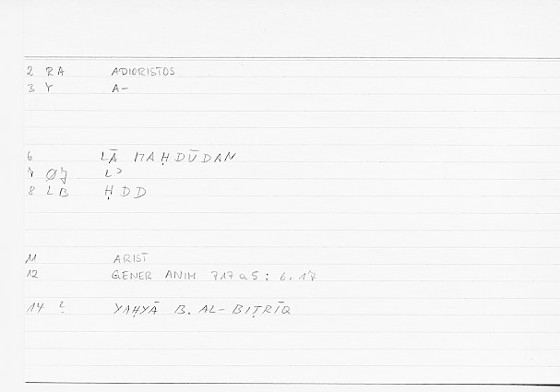 2 RA ADIORISTOS
3 Y A-
6 LĀ MAḤDŪDAN
7 ØJ Lʾ
8 LB ḤDD
11 ARIST
12 GENER ANIM 717a5 : 6.17
14 YAḤYĀ B. AL-BIṬRĪQ